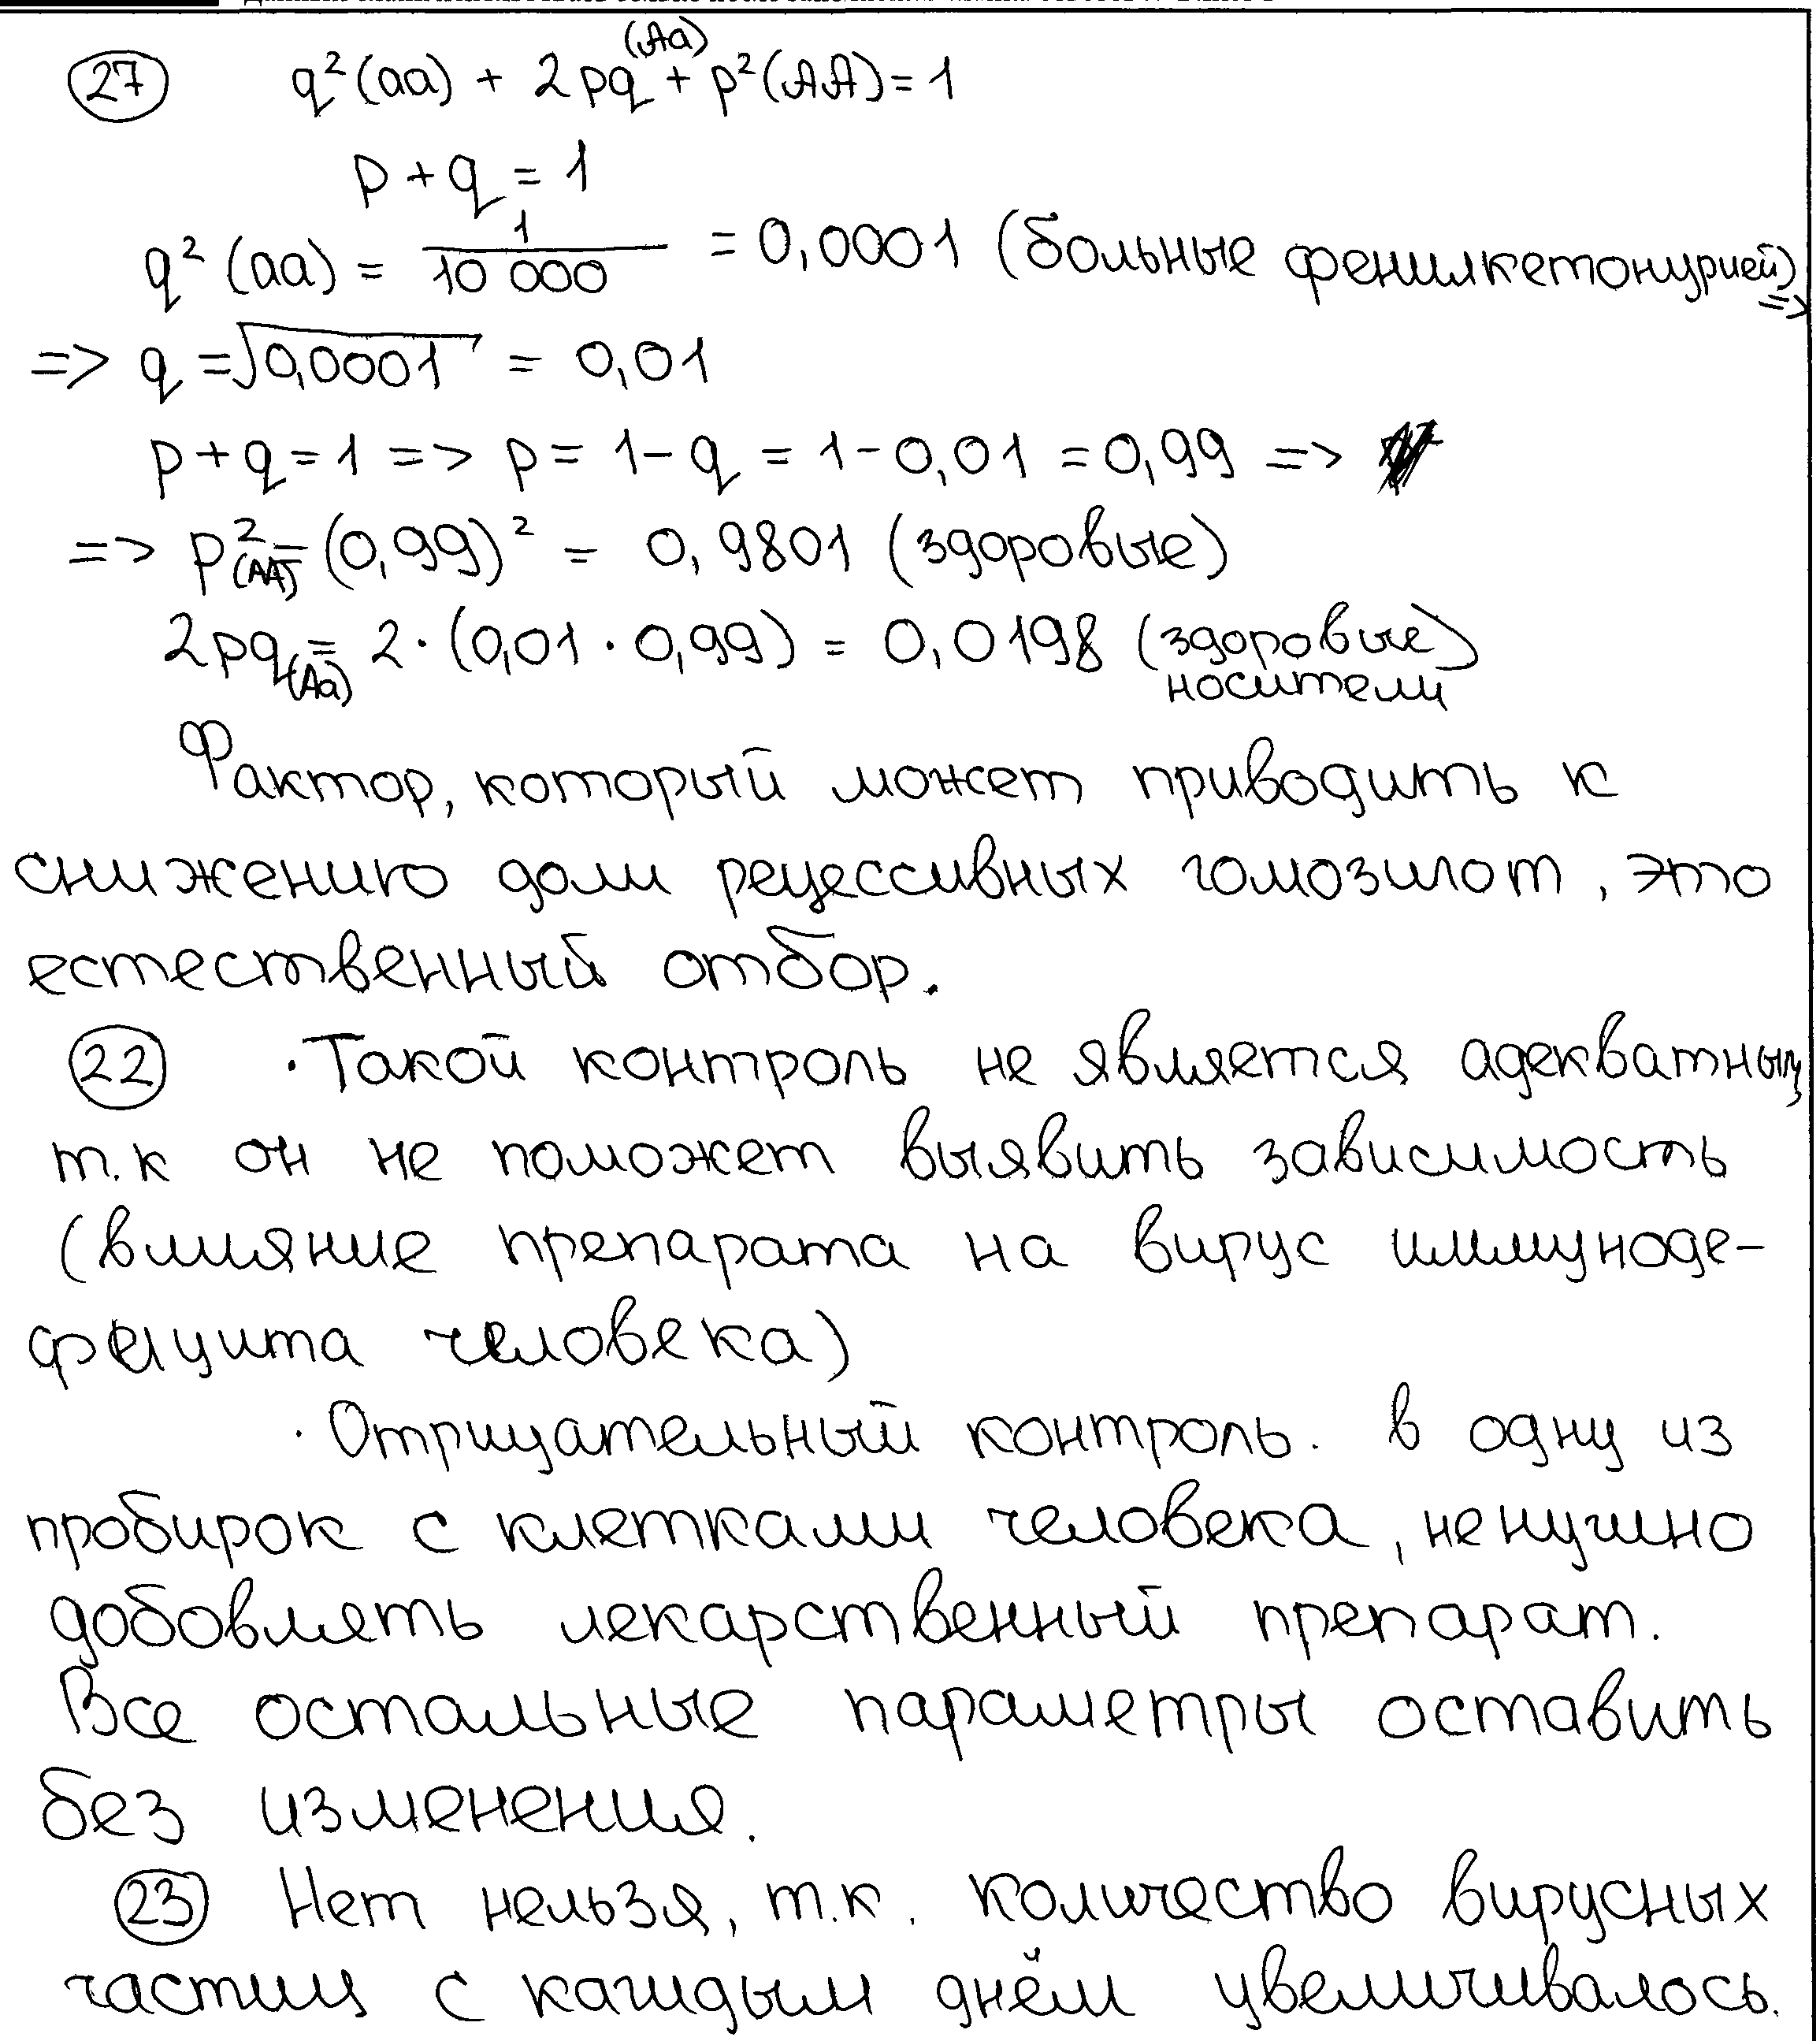 27 q² (aa) + 2pq (Aa) + p² (AA) = 1
p + q = 1
q² (aa) = 1/10 000 = 0,0001 (больные фенилкетонурией) =>
=> q = √0,0001 = 0,01
p + q = 1 => p = 1 - q = 1 - 0,01 = 0,99 =>
=> p² (AA) = (0,99)² = 0,9801 (здоровые)
2pq (Aa) = 2 · (0,01 · 0,99) = 0,0198 (здоровые)
носители
Фактор, который может приводить к
снижению доли рецессивных гомозилот, это
естественный отбор.
22 · Такой контроль не является адекватным
т.к он не поможет выявить зависимость
(влияние препарата на вирус иммуноде-
фицита человека)
· Отрицательный контроль. в одну из
пробирок с клетками человека, не нужно
добовлять лекарственный препарат.
Все остальные параметры оставить
без изменения.
23 Нет нельзя, т.к. количество вирусных
частиц с каждым днём увеличивалось.